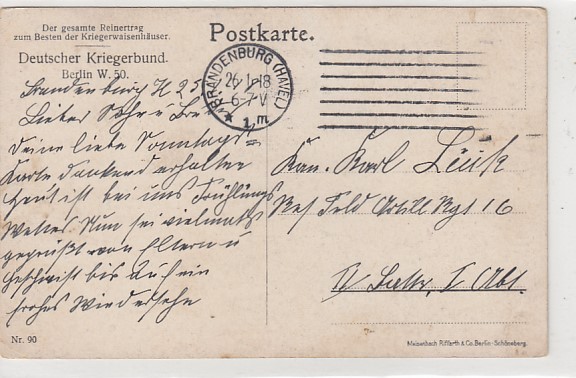 Der gesamte Reinertrag
zum Besten der Kriegerwaisenhäuser.
Deutscher Kriegerbund.
Berlin W. 50.
Postkarte.
BRANDENBURG (HAVEL)
26.1.18
6-7 V
* 1 m
Brandenburg H 25
Lieber Sohn u
Deine liebe Sonntags=
Karte dankend erhalten
Heut ist bei uns Frühlings
Wetter Nun sei vielmals
gegrüßt von Eltern u
Geschwist bis auf ein
frohes Wiedersehn
Kan. Karl Lück
Res Feld Artill Rgt 16
IV Battr. I Abt.
Nr. 90
Meisenbach Riffarth & Co. Berlin-Schöneberg.